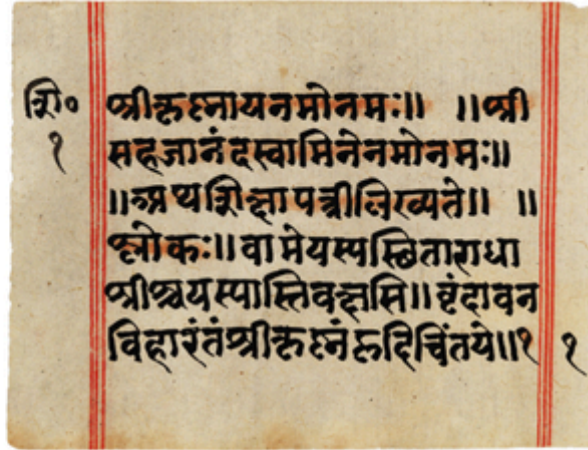 शि० श्रीकृष्नायनमोनमः॥ ॥श्री
१ सहजानंदस्वामिनेनमोनमः॥
॥अथशिक्षापत्रीलिख्यते॥ ॥
श्लोकः॥ वामेयस्यस्थिताराधा
श्रीश्चयस्यास्तिवक्षसि॥ वृंदावन
विहारंतंश्रीकृष्नंहृदिचिंतये॥१ १